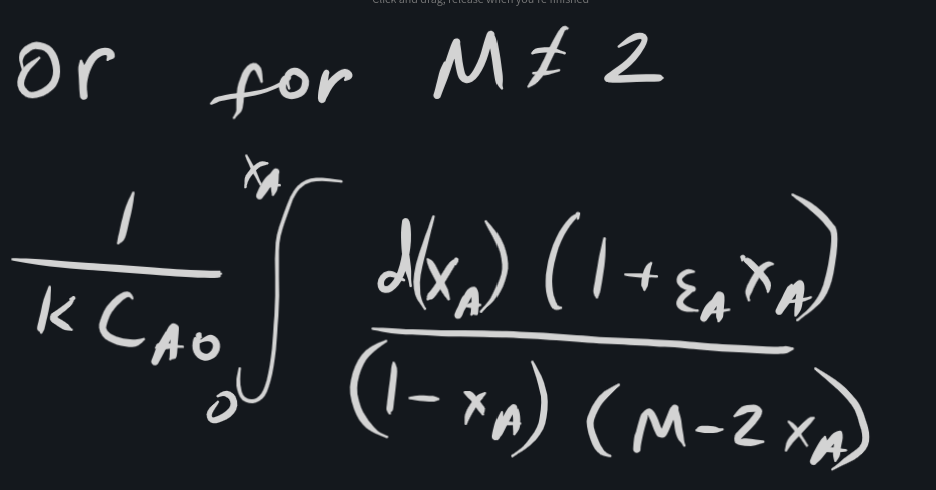 Click and drag, release when you're finished
or for M ≠ 2
1/(k C_{A0}) ∫_0^{x_A} d(x_A) (1 + ε_A x_A) / ((1 - x_A) (M - 2 x_A))